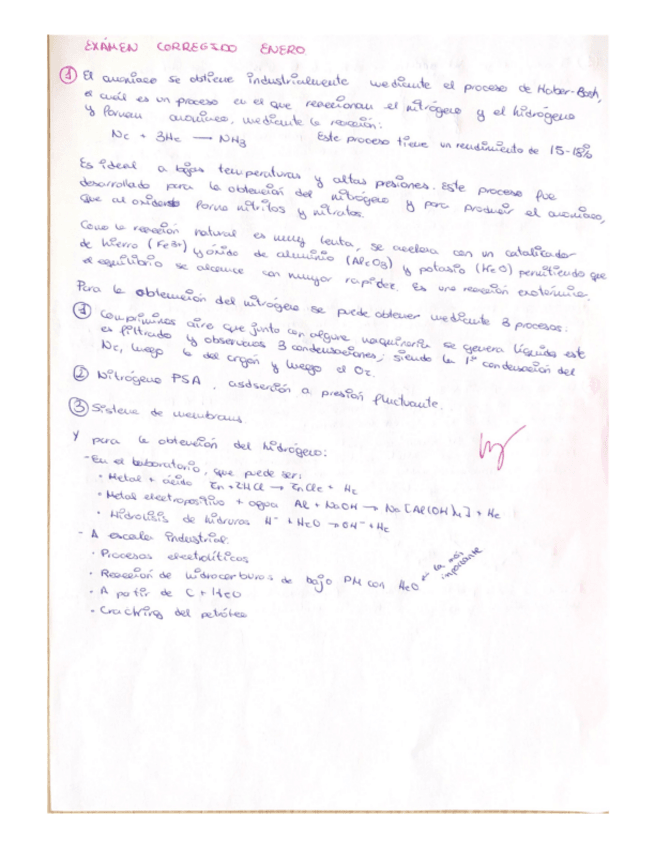 EXÁMEN CORREGIDO ENERO
① El amoniaco se obtiene industrialmente mediante el proceso de Haber-Bosh,
el cuál es un proceso en el que reaccionan el nitrógeno y el hidrógeno
y forman amoniaco, mediante la reacción:
N2 + 3H2 → NH3 Este proceso tiene un rendimiento de 15-18%
Es ideal a bajas temperaturas y altas presiones. Este proceso fue
desarrollado para la obtención del nitrógeno y para producir el amoniaco,
que al oxidarse forma nitritos y nitratos.
Como la reacción natural es muy lenta, se acelera con un catalizador
de hierro (Fe3+) y óxido de aluminio (Al2O3) y potasio (K2O) permitiendo que
el equilibrio se alcance con mayor rapidez. Es una reacción exotérmica.
Para la obtención del nitrógeno se puede obtener mediante 3 procesos:
① Comprimimos aire que junto con alguna maquinaria se genera líquido este
es filtrado y observamos 3 condensaciones; siendo la 1ª condensación del
N2, luego la del argón y luego el O2.
② Nitrógeno PSA, asdserción a presión fluctuante.
③ Sistema de membranas
Y para la obtención del hidrógeno:
- En el laboratorio, que puede ser:
• Metal + ácido Zn + 2HCl → ZnCl2 + H2
• Metal electropositivo + agua Al + NaOH → Na[Al(OH)4] + H2
• Hidrolisis de hidruros H- + H2O → OH- + H2
- A escala industrial:
• Procesos electrolíticos
• Reacción de hidrocarburos de bajo PM con H2O ← la más importante
• A partir de C + H2O
• Cracking del petróleo